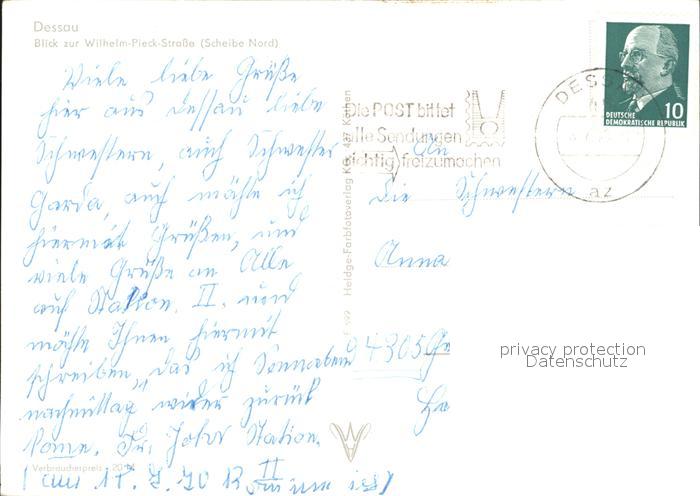 Dessau
Blick zur Wilhelm-Pieck-Straße (Scheibe Nord)
Viele liebe Grüße
hier aus Dessau liebe
Schwestern, auch Schwester
Garda, auch möchte ich
hiermit Grüßen, und
viele Grüße an Alle
auf Station. II. und
möchte Ihnen hiermit
schreiben, das ich Sonnabend
nachmittag wieder zurück
kome. Station.
II
Verbraucherpreis
Heldge-Farbfotoverlag KG, 437 Köthen
Die POST bittet
alle Sendungen
richtig freizumachen
DESSAU
az
DEUTSCHE
DEMOKRATISCHE REPUBLIK
10
An
Die Schwestern
Anna
94305 Ge
privacy protection
Datenschutz